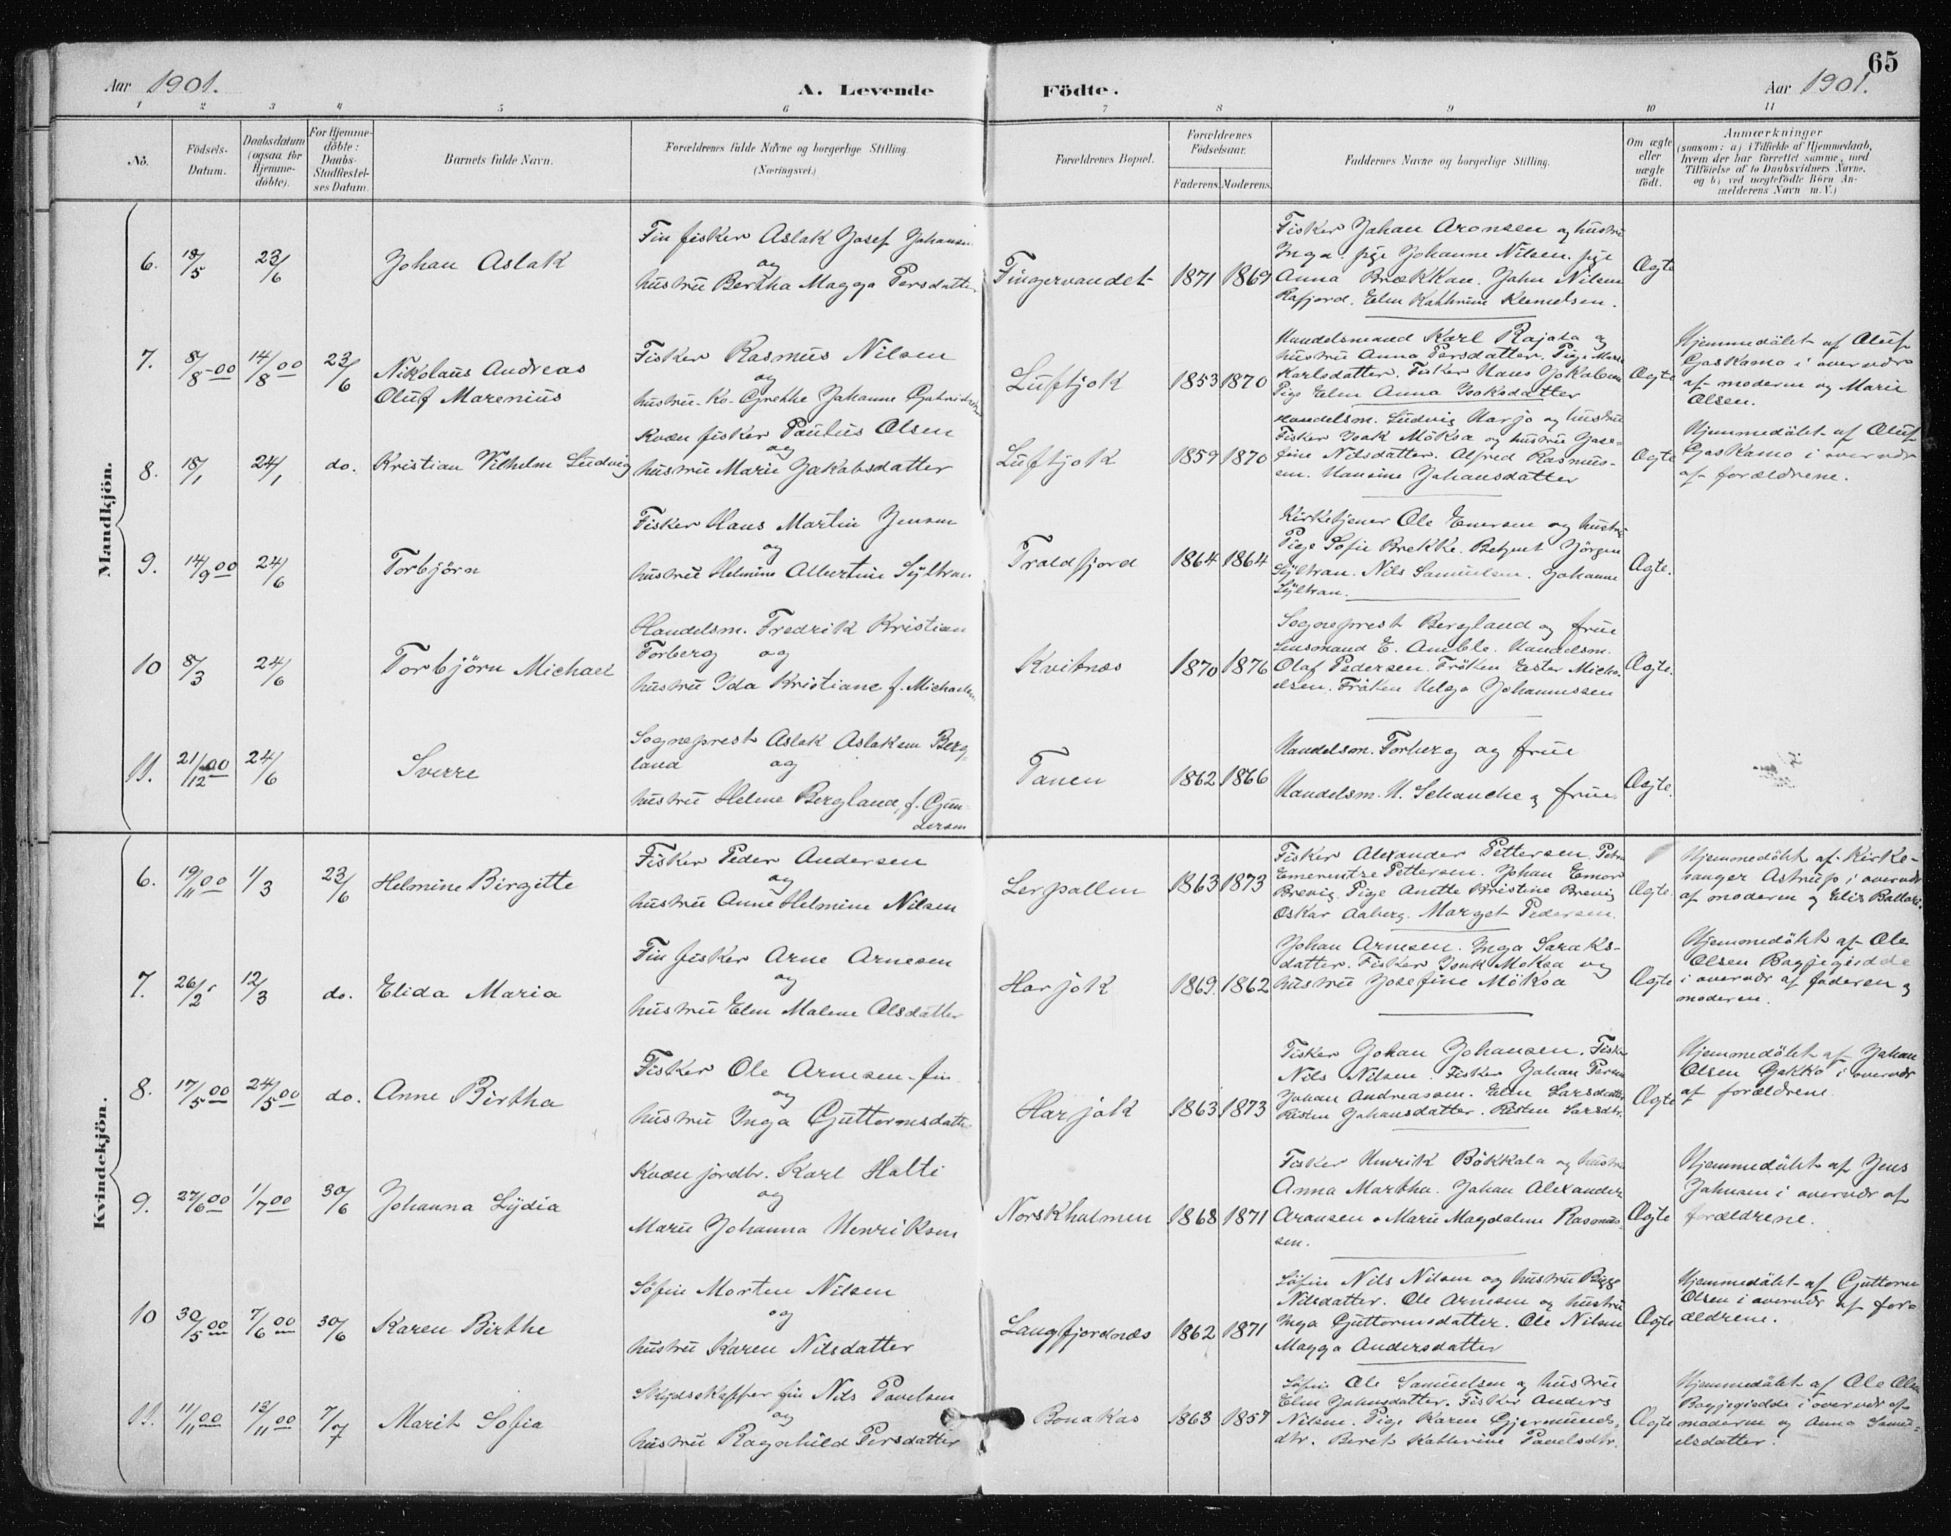 65
Aar 1901.
A. Levende Födte.
Aar 1901.
1 2 3 4 5 6 7 8 9 10 11
No.
Födsels-Datum.
Daabsdatum (ogsaa for Hjemmedöbte).
For Hjemmedöbte: Daabs-Stadfæstelses Datum.
Barnets fulde Navn.
Forældrenes fulde Navne og borgerlige Stilling.
(Næringsvei.)
Forældrenes Bopæl.
Forældrenes Födselsaar.
Faderens. Moderens.
Faddernes Navne og borgerlige Stilling.
Om ægte eller uægte födt.
Anmærkninger
(saasom: a) i Tilfælde af Hjemmedaab,
hvem der har forrettet samme, med
Tilföielse af to Daabsvidners Navne,
og b) ved uægtefödte Börn An-
melderens Navn m. V.)
Mandkjön.
6. 18/5 23/6 Johan Aslak
Fin fisker Aslak Josef Johansen
og
hustru Bertha Magga Persdatter
Fingervandet 1871 1869
Fisker Johan Aronsen og hustru
Inga. pige Johanne Nilsen. pige
Anna Brækkan. John Nilsen
Rafjord. Elen Kathrine
Ægte
7. 8/8-00 14/8 00 23/6
Nikolaus Andreas
Oluf Marenius
Fisker Rasmus Nilsen
og
hustru Grethe Johanne
Luftjok 1853 1870
Handelsmand Karl Rajala og
hustru Anna Persdatter. Pige Marie
Karlsdatter. Fisker Hans
Pige Elen Anna Isaksdatter
Ægte
Hjemmedöbt af Oluf
Gaskamo i overvær
af moderen og Marie
Olsen.
8. 18/1 24/1 do. Kristian Vilhelm Ludvig
Kvæn fisker Paulus Olsen
og
hustru Marie Jakobsdatter
Luftjok 1859 1870
Handelsm. Ludvig Harjo og hustru
Fisker Isak Möksa og hustru Jose-
fine Nilsdatter. Alfred Rasmus-
sen. Hansine Johansdatter
Ægte
Hjemmedöbt af Oluf
Gaskamo i overvær
af forældrene.
9. 14/9 00 24/6 Torbjörn
Fisker Hans Martin Jensen
og
hustru Helmine Albertine Syltran
Troldfjord 1864 1864
Kirketjener Ole Enersen og hustru
Pige Sofie Brekke. Betjent Jörgen
Syltran. Nils Samuelsen. Johanne
Syltran.
Ægte.
10 8/3 24/6 Torbjörn Michael
Handelsm. Fredrik Kristian
Forberg og
hustru Ida Kristiane f. Michaelsen
Kvitnæs 1870 1876
Sogneprest Bergland og frue
Lensmand E. Amble. Handelsm.
Olaf Pedersen. Fröken Ester Micha-
elsen. Fröken Helga Johannessen
Ægte.
11. 21/12 00 24/6 Sverre
Sogneprest Aslak Aslaksen Berg-
land og
hustru Helene Bergland, f. Gun-
dersen
Tanen 1862 1866
Handelsm. Forberg og frue
Handelsm. H. Schanche og frue
Ægte.
Kvindekjön.
6. 19/11 00 1/3 23/6 Helmine Birgitte
Fisker Peder Andersen
og
hustru Anne Helmine Nilsen
Lerpollen 1863 1873
Fisker Alexander Pettersen. Petra
Emerentze Pettersen. Johan Emor
Brevig. Pige Anette Kristine Brevig
Oskar Aaberg. Marget Pedersen.
Ægte.
Hjemmedöbt af Kirke-
sanger Astrup i overvær
af moderen og Elis
7. 26/2 12/3 do. Elida Maria
Fin fisker Arne Arnesen
og
hustru Elen Malene Olsdatter
Harjok 1869. 1862
Johan Arnesen. Inga Saraks-
datter. Fisker Isak Moksa og
hustru Josefine Möksa
Ægte
Hjemmedöbt af Ole
Olsen Bagjegiedde
i overvær af faderen og
moderen.
8. 17/5 00 24/5 00 do. Anne Birtha
Fisker Ole Arnesen - fin
og
hustru Inga Guttormsdatter
Harjok 1863 1873
Fisker Johan Johansen. Fisker
Nils Nilsen. Fisker Johan
Johan Andreassen. Elen Larsdatter
Risten Johansdatter. Risten Larsdtr.
Ægte
Hjemmedöbt af Johan
Olsen Gakko i overvær
af forældrene.
9. 27/6 00 1/7 00 30/6 Johanna Lydia
Kvæn jordbr. Karl Halti
og
Marie Johanna Henriksen
Norskholmen 1868 1871
Fisker Henrik Bökkala og hustru
Anna Martha. Johan Alexander
Aronsen. Marie Magdalene Rasmus-
sen.
Ægte
Hjemmedöbt af Jens
Johnsen i overvær af
forældrene.
10 30/5 00 7/6 00 30/6 Karen Birthe
Söfin Morten Nilsen
og
hustru Karen Nilsdatter
Langfjordnæs 1862 1871
Söfin Nils Nilsen og hustru Bigge
Nilsdatter. Ole Arnesen og hustru
Inga Guttormsdatter. Ole Nilsen
Magga Andersdatter
Ægte
Hjemmedöbt af Guttorm
Olsen i overvær af for-
ældrene.
11. 11/11 00 13/11 00 7/7 Marit Sofia
Skydsskaffer fin Nils Pavelsen
og
hustru Ragnhild Persdatter
Bonakas 1863 1857
Söfin Ole Samuelsen og hustru
Elen Johnsdatter. Fisker Anders
Nilsen. Pige Karen Gjermunds-
dtr. Beret Kathrine Pavelsdtr.
Ægte
Hjemmedöbt af Ole Olsen
Bagjegiedde i overvær af
moderen og Anna Samu-
elsdatter.